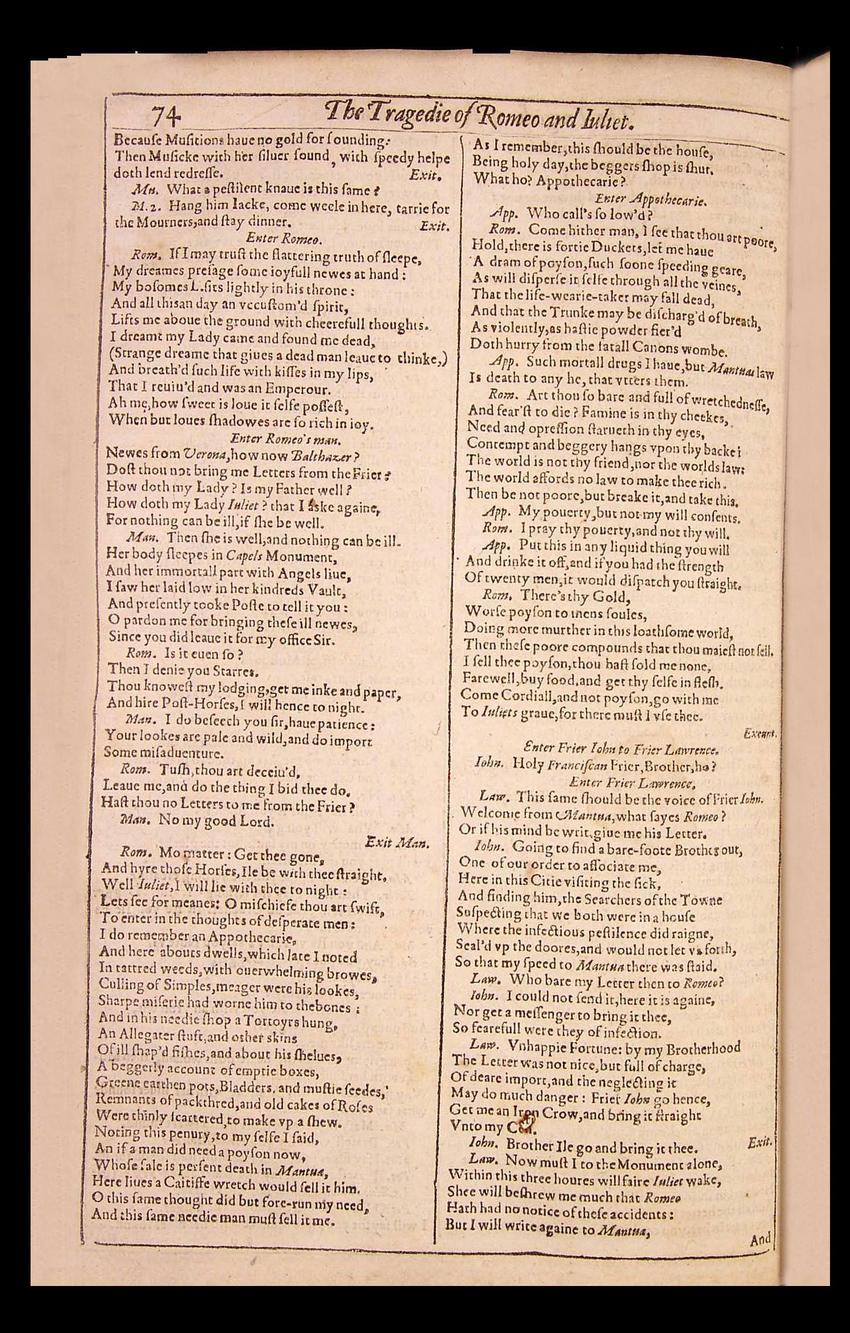 74
The Tragedie of Romeo and Iuliet.
Becauſe Muſitions haue no gold for ſounding:
Then Muſicke with her ſiluer ſound, with ſpeedy helpe
doth lend redreſſe. Exit.
Mu. What a peſtilent knaue is this ſame?
M.2. Hang him Iacke, come weele in here, tarrie for
the Mourners, and ſtay dinner. Exit.
Enter Romeo.
Rom. If I may truſt the flattering truth of ſleepe,
My dreames preſage ſome ioyfull newes at hand:
My boſomes L. ſits lightly in his throne:
And all thisan day an vccuſtom'd ſpirit,
Lifts me aboue the ground with cheerefull thoughts.
I dreamt my Lady came and found me dead,
(Strange dreame that giues a dead man leaue to thinke,)
And breath'd ſuch life with kiſſes in my lips,
That I reuiu'd and was an Emperour.
Ah me, how ſweet is loue it ſelfe poſſeſt,
When but loues ſhadowes are ſo rich in ioy.
Enter Romeo's man.
Newes from Verona, how now Balthazer?
Doſt thou not bring me Letters from the Frier?
How doth my Lady? Is my Father well?
How doth my Lady Iuliet? that I aske againe,
For nothing can be ill, if ſhe be well.
Man. Then ſhe is well, and nothing can be ill.
Her body ſleepes in Capels Monument,
And her immortall part with Angels liue,
I ſaw her laid low in her kindreds Vault,
And preſently tooke Poſte to tell it you:
O pardon me for bringing theſe ill newes,
Since you did leaue it for my office Sir.
Rom. Is it euen ſo?
Then I denie you Starres.
Thou knoweſt my lodging, get me inke and paper,
And hire Poſt-Horſes, I will hence to night.
Man. I do beſeech you ſir, haue patience:
Your lookes are pale and wild, and do import
Some miſaduenture.
Rom. Tuſh, thou art deceiu'd,
Leaue me, and do the thing I bid thee do.
Haſt thou no Letters to me from the Frier?
Man. No my good Lord.
Exit Man.
Rom. Mo matter: Get thee gone,
And hyre thoſe Horſes, Ile be with thee ſtraight,
Well Iuliet, I will lie with thee to night:
Lets ſee for meanes: O miſchiefe thou art ſwift,
To enter in the thoughts of deſperate men:
I do remember an Appothecarie,
And here abouts dwells, which late I noted
In tattred weeds, with ouerwhelming browes,
Culling of Simples, meager were his lookes,
Sharpe miſerie had worne him to the bones:
And in his needie ſhop a Tortoyrs hung,
An Allegater ſtuft, and other skins
Of ill ſhap'd fiſhes, and about his ſhelues,
A beggerly account of emptie boxes,
Greene earthen pots, Bladders, and muſtie ſeedes,
Remnants of packthred, and old cakes of Roſes
Were thinly ſcattered, to make vp a ſhew.
Noting this penury, to my ſelfe I ſaid,
An if a man did need a poyſon now,
Whoſe ſale is perſent death in Mantua,
Here liues a Caitiffe wretch would ſell it him.
O this ſame thought did but fore-run my need,
And this ſame needie man muſt ſell it me.
As I remember, this ſhould be the houſe,
Being holy day, the beggers ſhop is ſhut.
What ho? Appothecarie?
Enter Appothecarie.
App. Who call's ſo low'd?
Rom. Come hither man, I ſee that thou art poore,
Hold, there is fortie Duckets, let me haue
A dram of poyſon, ſuch ſoone ſpeeding geare,
As will diſperſe it ſelfe through all the veines,
That the life-wearie-taker may fall dead,
And that the Trunke may be diſcharg'd of breath,
As violently, as haſtie powder fier'd
Doth hurry from the fatall Canons wombe.
App. Such mortall drugs I haue, but Mantuas law
Is death to any he, that vtters them.
Rom. Art thou ſo bare and full of wretchedneſſe,
And fear'ſt to die? Famine is in thy cheekes,
Need and opreſſion ſtarueth in thy eyes,
Contempt and beggery hangs vpon thy backe:
The world is not thy friend, nor the worlds law:
The world affords no law to make thee rich.
Then be not poore, but breake it, and take this.
App. My pouerty, but not my will conſents.
Rom. I pray thy pouerty, and not thy will.
App. Put this in any liquid thing you will
And drinke it off, and if you had the ſtrength
Of twenty men, it would diſpatch you ſtraight.
Rom. There's thy Gold,
Worſe poyſon to mens ſoules,
Doing more murther in this loathſome world,
Then theſe poore compounds that thou maieſt not ſell.
I ſell thee poyſon, thou haſt ſold me none,
Farewell, buy food, and get thy ſelfe in fleſh.
Come Cordiall, and not poyſon, go with me
To Iuliets graue, for there muſt I vſe thee.
Exeunt.
Enter Frier Iohn to Frier Lawrence.
Iohn. Holy Franciſcan Frier, Brother, ho?
Enter Frier Lawrence.
Law. This ſame ſhould be the voice of Frier Iohn.
Welcome from Mantua, what ſayes Romeo?
Or if his mind be writ, giue me his Letter.
Iohn. Going to find a bare-foote Brother out,
One of our order to aſſociate me,
Here in this Citie viſiting the ſick,
And finding him, the Searchers of the Towne
Suſpecting that we both were in a houſe
Where the infectious peſtilence did raigne,
Seal'd vp the doores, and would not let vs forth,
So that my ſpeed to Mantua there was ſtaid.
Law. Who bare my Letter then to Romeo?
Iohn. I could not ſend it, here it is againe,
Nor get a meſſenger to bring it thee,
So fearefull were they of infection.
Law. Vnhappie Fortune: by my Brotherhood
The Letter was not nice, but full of charge,
Of deare import, and the neglecting it
May do much danger: Frier Iohn go hence,
Get me an Iron Crow, and bring it ſtraight
Vnto my Cell.
Iohn. Brother Ile go and bring it thee. Exit.
Law. Now muſt I to the Monument alone,
Within this three houres will faire Iuliet wake,
Shee will beſhrew me much that Romeo
Hath had no notice of theſe accidents:
But I will write againe to Mantua,
And